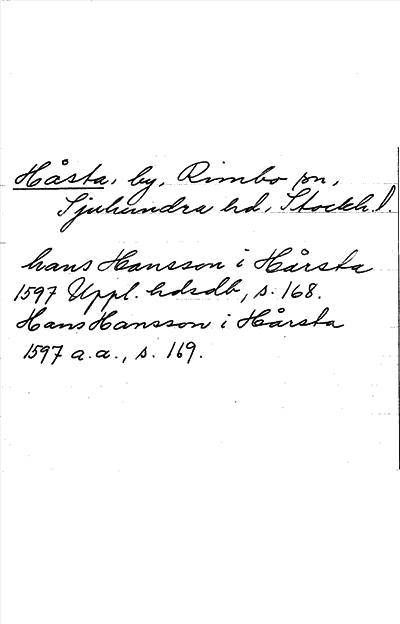 Håsta, by, Rimbo sn,
Sjuhundra hd, Stockh. l.
hans Hansson i Hårsta
1597 Uppl. hdsdb, s. 168.
Hans Hansson i Hårsta
1597 a.a., s. 169.